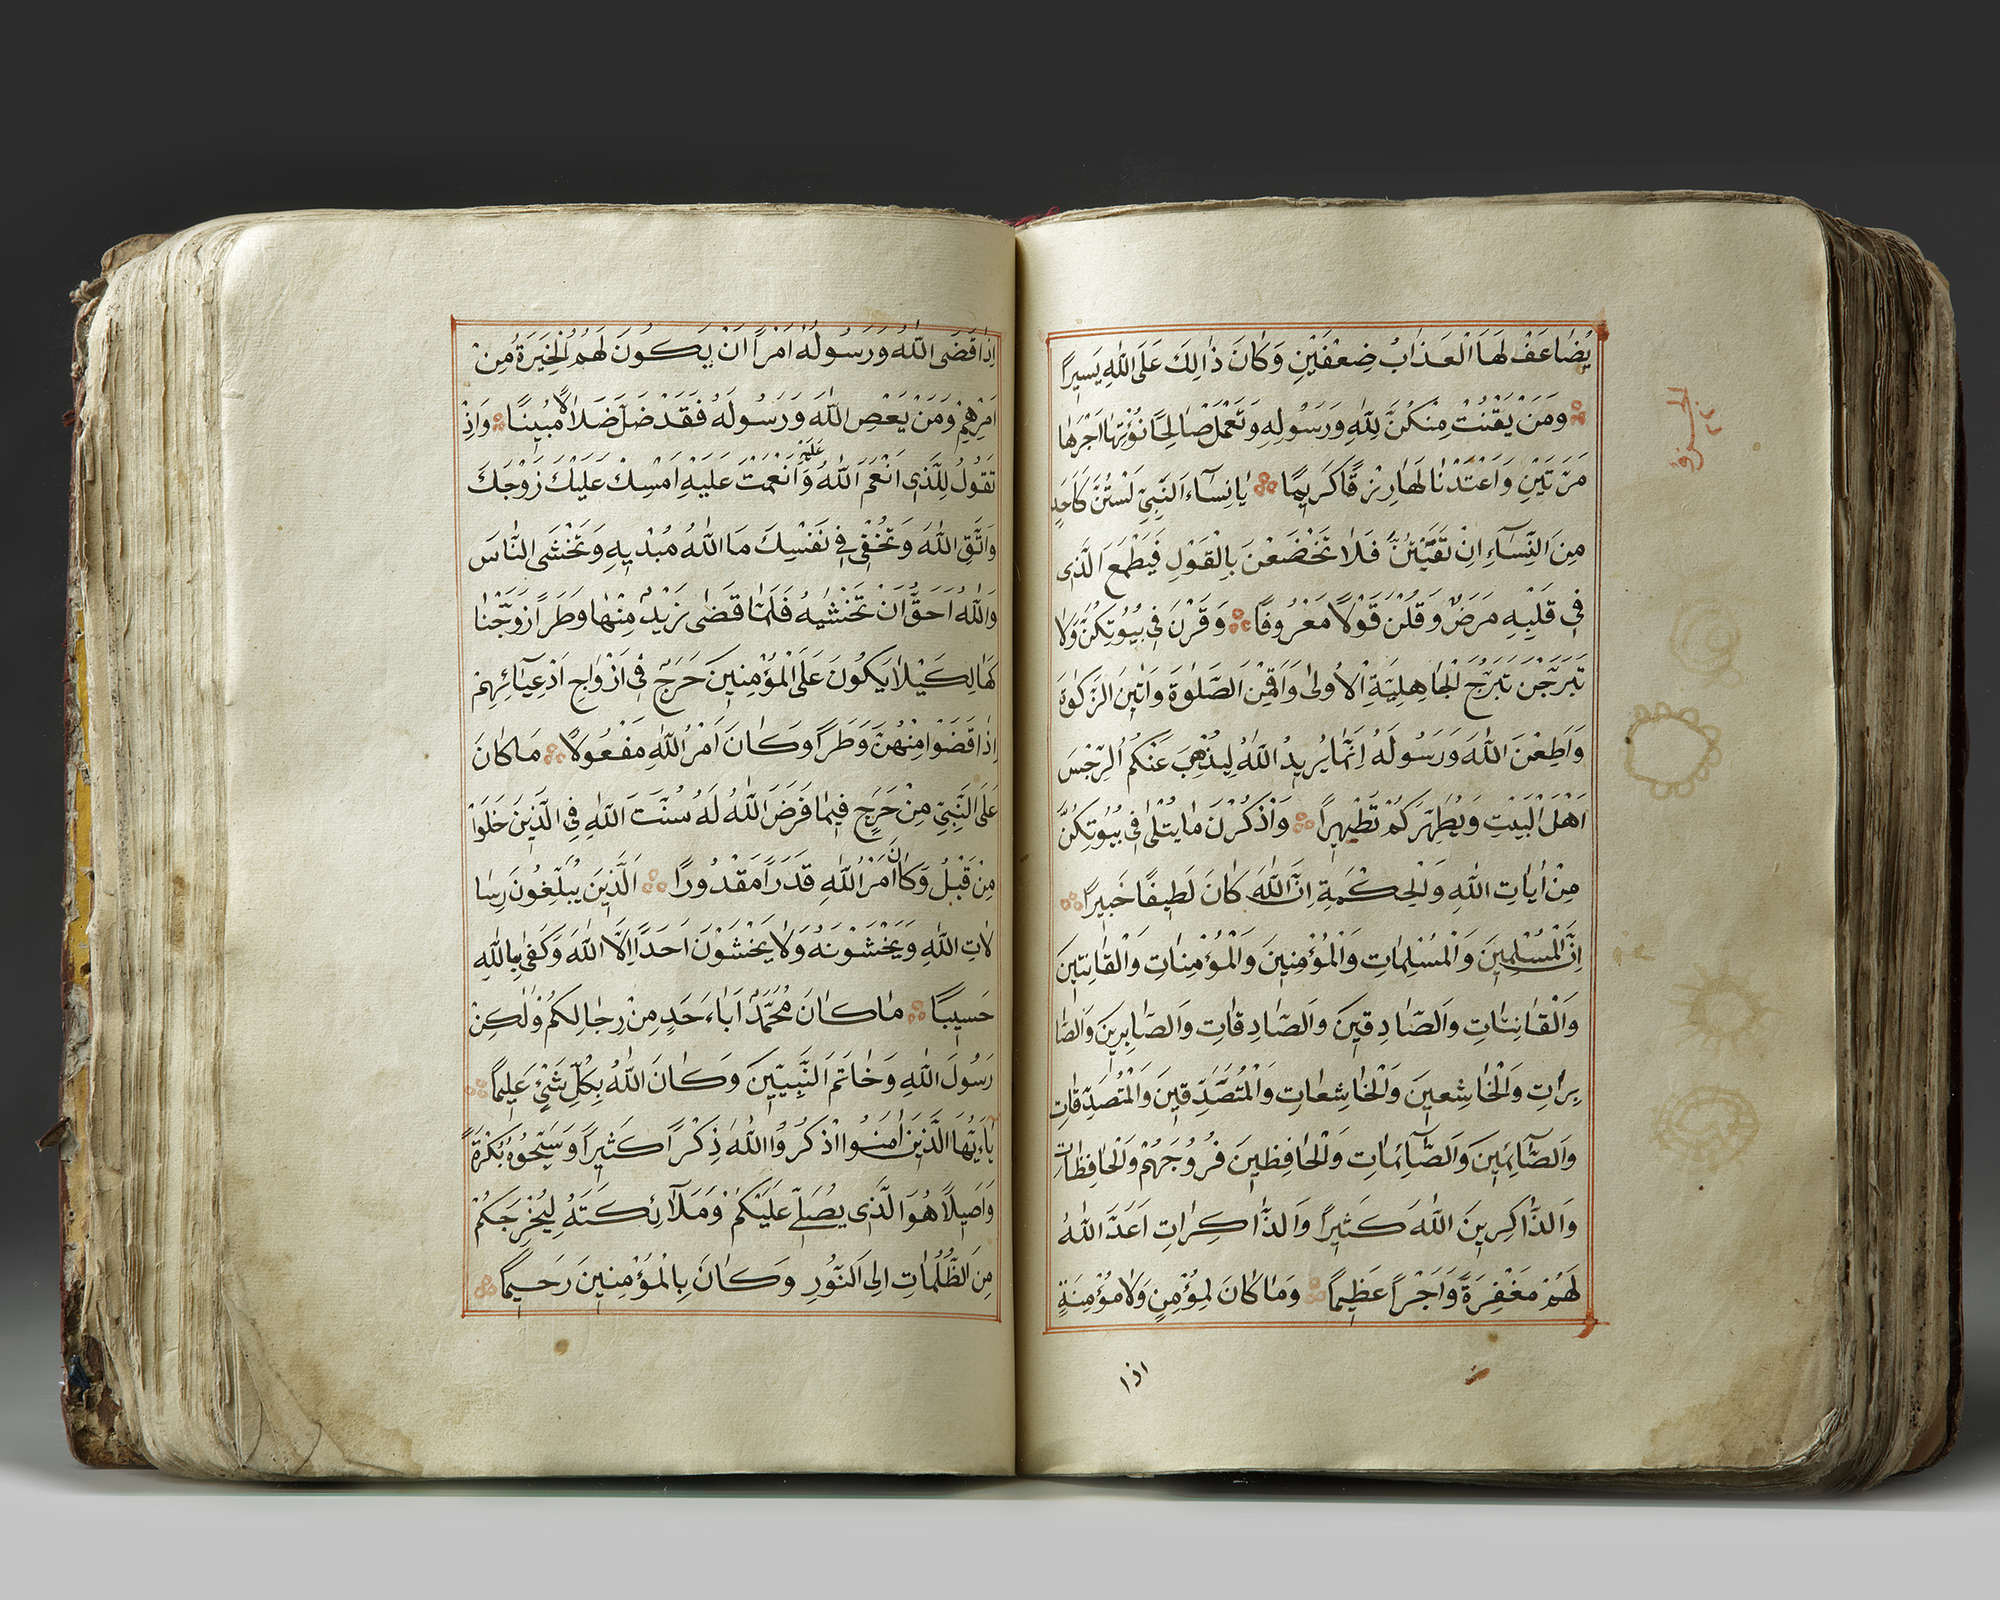 يُضَاعَفْ لَهَا الْعَذَابُ ضِعْفَيْنِ وَكَانَ ذَالِكَ عَلَى اللّٰهِ يَسِيرًا
وَمَنْ يَقْنُتْ مِنْكُنَّ لِلّٰهِ وَرَسُولِهِ وَتَعْمَلْ صَالِحًا نُؤْتِهَا اَجْرَهَا
مَرَّتَيْنِ وَاَعْتَدْنَا لَهَا رِزْقًا كَرِيمًا يَانِسَاءَ النَّبِيِّ لَسْتُنَّ كَاَحَدٍ
مِنَ النِّسَاءِ اِنْ تَقَيْتُنَّ فَلَا تَخْضَعْنَ بِالْقَوْلِ فَيَطْمَعَ الَّذِى
فِى قَلْبِهِ مَرَضٌ وَقُلْنَ قَوْلًا مَعْرُوفًا وَقَرْنَ فِى بُيُوتِكُنَّ وَلَا
تَبَرَّجْنَ تَبَرُّجَ الْجَاهِلِيَّةِ الْاُولٰى وَاَقِمْنَ الصَّلٰوةَ وَاٰتِينَ الزَّكٰوةَ
وَاَطِعْنَ اللّٰهَ وَرَسُولَهُ اِنَّمَا يُرِيدُ اللّٰهُ لِيُذْهِبَ عَنْكُمُ الرِّجْسَ
اَهْلَ الْبَيْتِ وَيُطَهِّرَكُمْ تَطْهِيرًا وَاذْكُرْنَ مَا يُتْلٰى فِى بُيُوتِكُنَّ
مِنْ اٰيَاتِ اللّٰهِ وَالْحِكْمَةِ اِنَّ اللّٰهَ كَانَ لَطِيفًا خَبِيرًا
اِنَّ الْمُسْلِمِينَ وَالْمُسْلِمَاتِ وَالْمُؤْمِنِينَ وَالْمُؤْمِنَاتِ وَالْقَانِتِينَ
وَالْقَانِتَاتِ وَالصَّادِقِينَ وَالصَّادِقَاتِ وَالصَّابِرِينَ وَالصَّا
بِرَاتِ وَالْخَاشِعِينَ وَالْخَاشِعَاتِ وَالْمُتَصَدِّقِينَ وَالْمُتَصَدِّقَاتِ
وَالصَّآئِمِينَ وَالصَّآئِمَاتِ وَالْحَافِظِينَ فُرُوجَهُمْ وَالْحَافِظَاتِ
وَالذَّاكِرِينَ اللّٰهَ كَثِيرًا وَالذَّاكِرَاتِ اَعَدَّ اللّٰهُ
لَهُمْ مَغْفِرَةً وَاَجْرًا عَظِيمًا وَمَا كَانَ لِمُؤْمِنٍ وَلَا مُؤْمِنَةٍ
اذا
اِذَا قَضَى اللّٰهُ وَرَسُولُهُ اَمْرًا اَنْ يَكُونَ لَهُمُ الْخِيَرَةُ مِنْ
اَمْرِهِمْ وَمَنْ يَعْصِ اللّٰهَ وَرَسُولَهُ فَقَدْ ضَلَّ ضَلَالًا مُبِينًا وَاِذْ
تَقُولُ لِلَّذِى اَنْعَمَ اللّٰهُ عَلَيْهِ وَاَنْعَمْتَ عَلَيْهِ اَمْسِكْ عَلَيْكَ زَوْجَكَ
وَاتَّقِ اللّٰهَ وَتُخْفِى فِى نَفْسِكَ مَا اللّٰهُ مُبْدِيهِ وَتَخْشَى النَّاسَ
وَاللّٰهُ اَحَقُّ اَنْ تَخْشٰيهُ فَلَمَّا قَضٰى زَيْدٌ مِنْهَا وَطَرًا زَوَّجْنَا
كَهَا لِكَيْلَا يَكُونَ عَلَى الْمُؤْمِنِينَ حَرَجٌ فِى اَزْوَاجِ اَدْعِيَآئِهِمْ
اِذَا قَضَوْا مِنْهُنَّ وَطَرًا وَكَانَ اَمْرُ اللّٰهِ مَفْعُولًا مَا كَانَ
عَلَى النَّبِيِّ مِنْ حَرَجٍ فِيمَا فَرَضَ اللّٰهُ لَهُ سُنَّتَ اللّٰهِ فِى الَّذِينَ خَلَوْا
مِنْ قَبْلُ وَكَانَ اَمْرُ اللّٰهِ قَدَرًا مَقْدُورًا اَلَّذِينَ يُبَلِّغُونَ رِسَا
لَاتِ اللّٰهِ وَيَخْشَوْنَهُ وَلَا يَخْشَوْنَ اَحَدًا اِلَّا اللّٰهَ وَكَفٰى بِاللّٰهِ
حَسِيبًا مَا كَانَ مُحَمَّدٌ اَبَاءَحَدٍ مِنْ رِجَالِكُمْ وَلٰكِنْ
رَسُولَ اللّٰهِ وَخَاتَمَ النَّبِيِّينَ وَكَانَ اللّٰهُ بِكُلِّ شَىْءٍ عَلِيمًا
يَآءَيُّهَا الَّذِينَ اٰمَنُوا اذْكُرُوا اللّٰهَ ذِكْرًا كَثِيرًا وَسَبِّحُوهُ بُكْرَةً
وَاَصِيلًا هُوَ الَّذِى يُصَلِّى عَلَيْكُمْ وَمَلَآئِكَتَهُ لِيُخْرِجَكُمْ
مِنَ الظُّلُمَاتِ اِلَى النُّورِ وَكَانَ بِالْمُؤْمِنِينَ رَحِيمًا